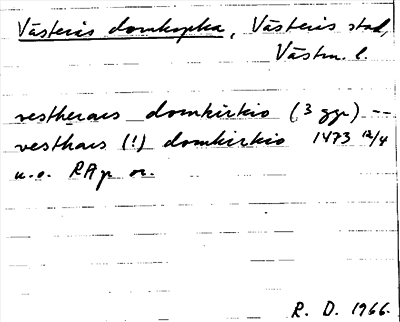 Västerås domkyrka, Västerås stad,
Västm. l.
vestheraes domkirkio (3 ggr) --
vesthars (!) domkirkio 1473 12/4
u.o. RAp or.
R. D. 1966.